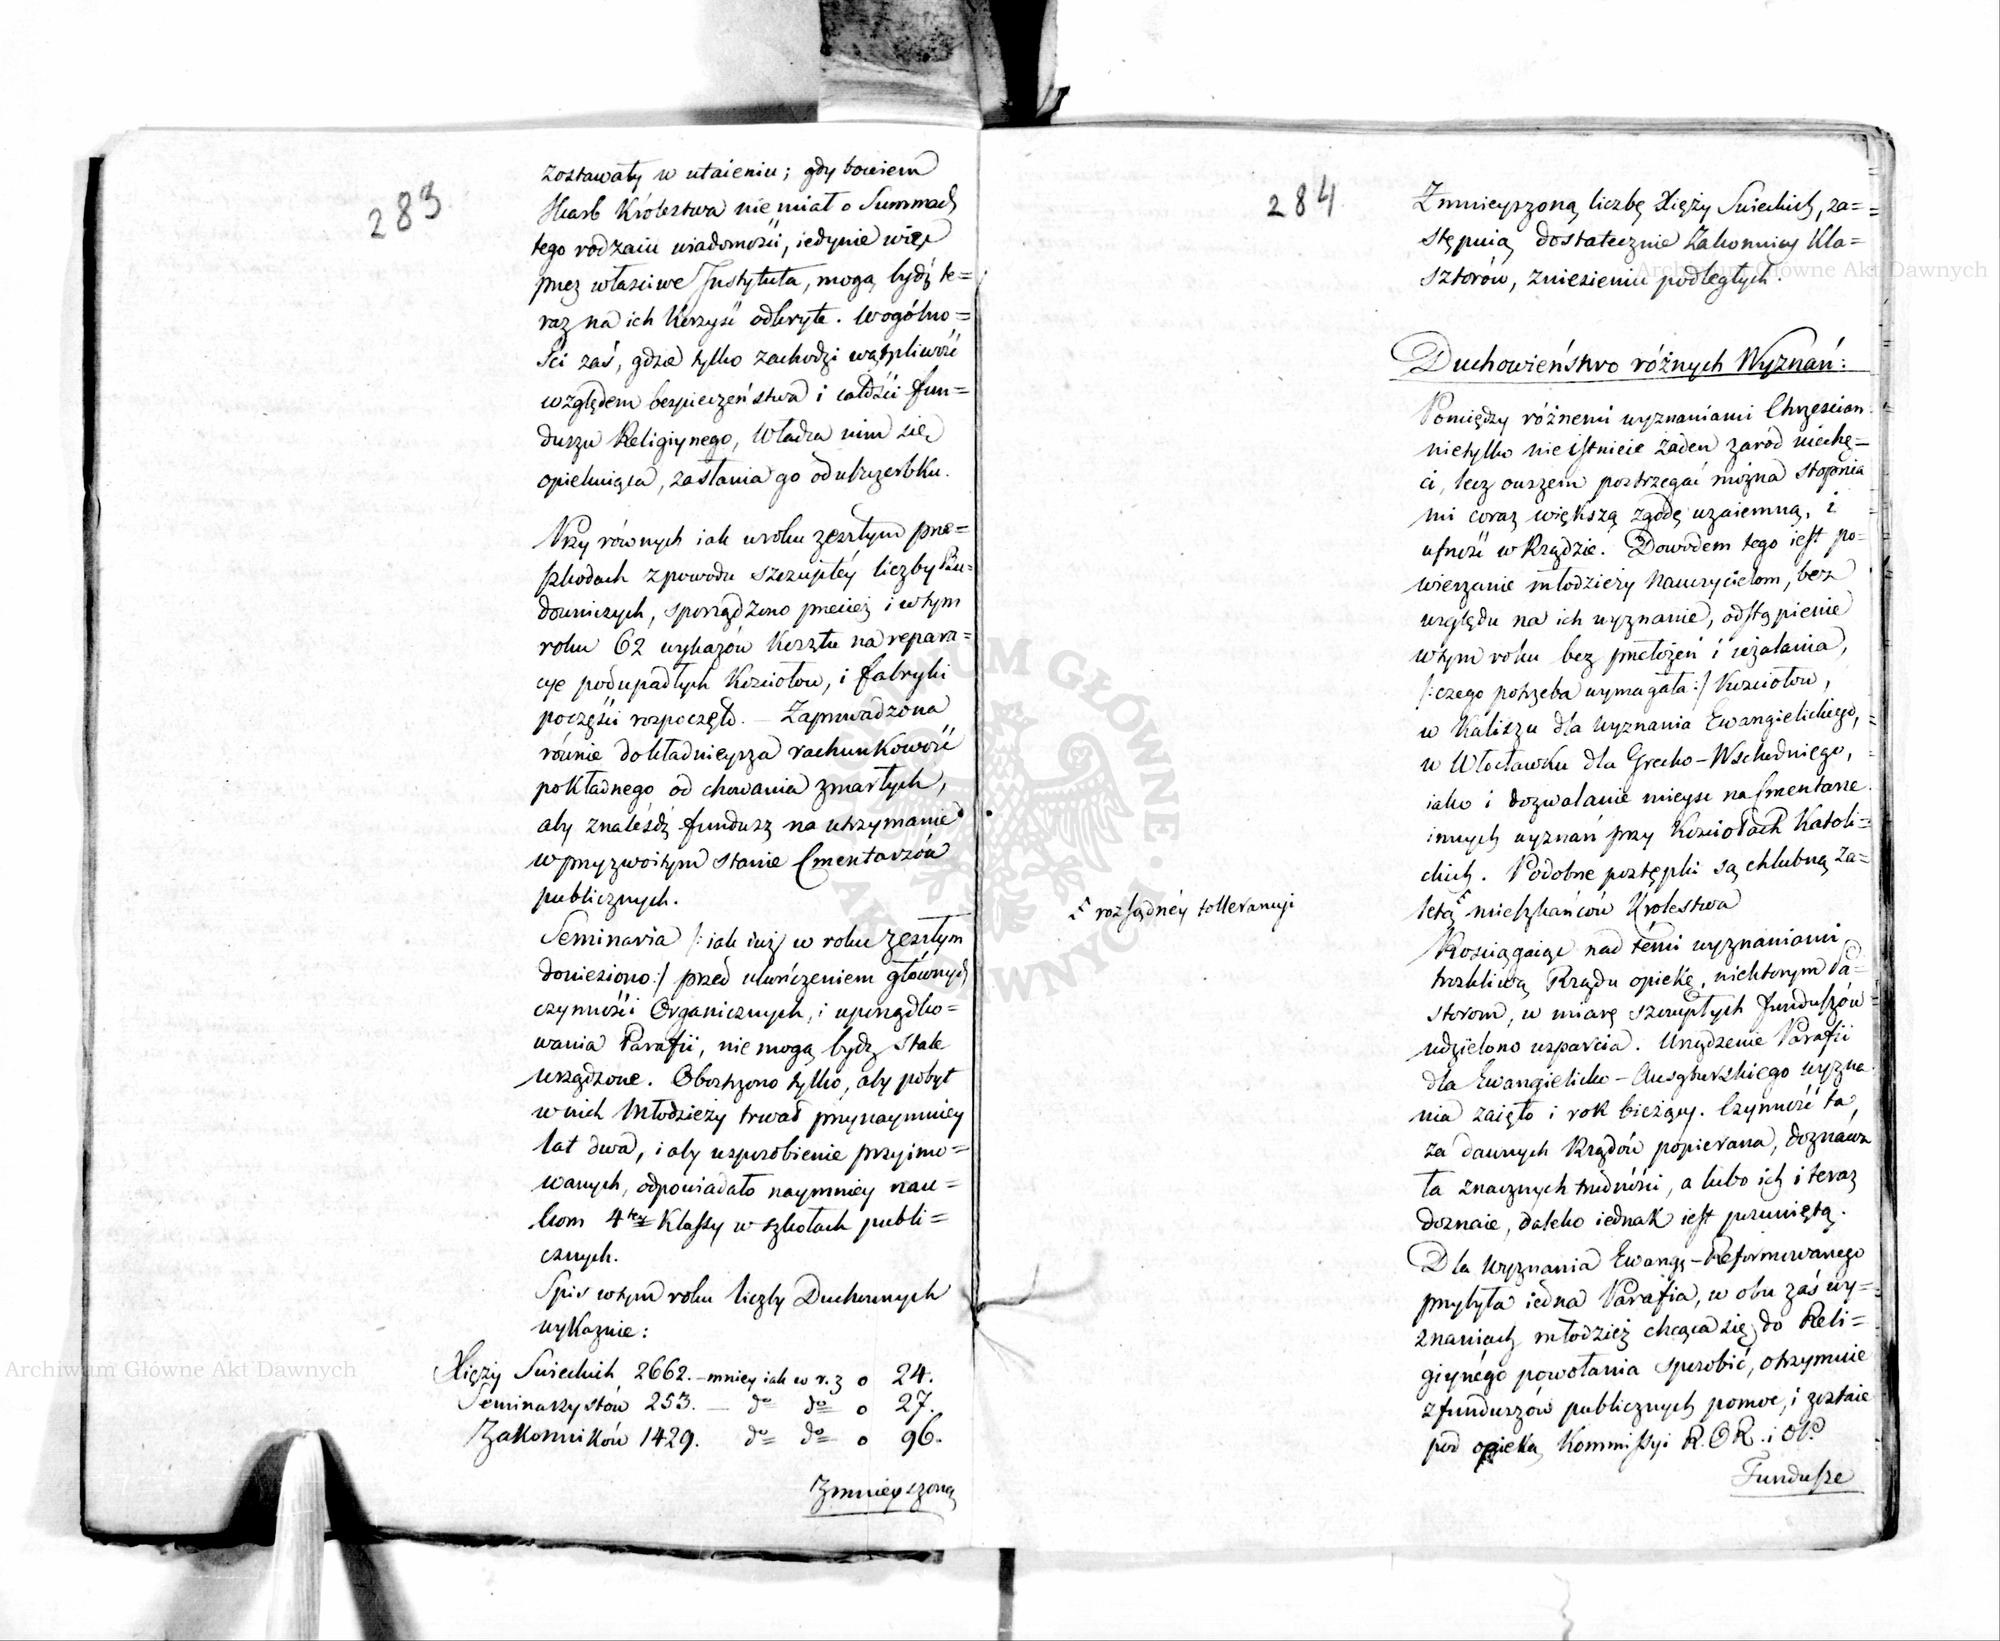 283.
zostawały w utaieniu; gdy bowiem
Skarb Królestwa nie miał o Summach
tego rodzaiu wiadomości, iedynie więc
przez właściwe Instytuta, mogą bydź te=
raz na ich korzyść odkryte. Wogólno=
ści zaś, gdzie tylko zachodzi wątpliwość
względem bezpieczeństwa i całości fun=
duszu Religiynego, Władza nim się
opiekuiąca, zasłania go od uszczerbku.
Przy równych iak w roku zeszłym prze=
szkodach z powodu szczupłéy liczby Bu=
downiczych, sporządzono przecież i w tym
roku 62 wykazów kosztu na repara=
cye podupadłych Kościołow, i fabryki
poczęści rozpoczęto. – Zaprowadzona
równie dokładnieysza rachunkowość
pokładnego od chowania zmarłych,
aby znaleśdź fundusz na utrzymanie
w przyzwoitym stanie Cmentarzów
publicznych.
Seminaria /: iak iuż w roku zeszłym
doniesiono :/ przed ukończeniem głównych
czynności Organicznych, i uporządko=
wania Parafii, nie mogą bydz stale
urządzone. Obostrzono tylko, aby pobyt
w nich Młodzieży trwał przynaymniey
lat dwa, i aby usposobienie przyimo=
wanych, odpowiadało naymniey nau=
kom 4tey Klassy w szkołach publi=
cznych.
Spis w tym roku liczby Duchownych
wykazuie:
Xięży Świeckich 2662. – mniey iak w r. z o 24.
Seminarzystów 253. – do do o 27.
Zakonników 1429. do do o 96.
Zmnieyszoną
284
Zmnieyszoną liczbę Xięży Świeckich, za=
stępuią dostatecznie Zakonnicy Kla=
sztorów, zniesieniu podległych.
Duchowieństwo różnych Wyznań:
Pomiędzy różnemi wyznaniami Chrześcian
nietylko nie istnieie żaden zaród niechę=
ci, lecz owszem postrzegać można stopnia
mi coraz większą zgodę wzaiemną, i
ufność w Rządzie. Dowodem tego iest po=
wierzanie młodzieży Nauczycielom, bez
względu na ich wyznanie, odstąpienie
w tym roku bez przełożeń i użalania,
/: czego potrzeba wymagała :/ Kościołow,
w Kaliszu dla wyznania Ewangielickiego,
w Włocławku dla Grecko-Wschodniego,
iako i dozwalanie mieysc na Cmentarze
innych wyznań przy Kościołach Katoli=
ckich. Podobne postępki są chlubną za=
letą mieszkańców Krolestwa
rozsądnéy tollerancyi
Rosciągaiąc nad témi wyznaniami
troskliwą Rządu opiekę, niektorym Pa=
storom, w miarę szczupłych funduszów
udzielono wsparcia. Urządzenie Parafii
dla Ewangielicko-Augsburskiego wyzna
nia zaięło i rok bieżący. Czynność ta,
za dawnych Rządów popierana, doznawa
ła znacznych trudności, a lubo ich i teraz
doznaie, daleko iednak iest posuniętą.
Dla wyznania Ewang-Reformowanego
przybyła iedna Parafia, w obu zaś wy=
znaniach młodzież chcąca się do Reli=
giynégo powołania sposobić, otrzymuie
z funduszów publicznych pomoc, i zostaie
pod opieką Kommissyi R. O R. i O P.
Fundusze